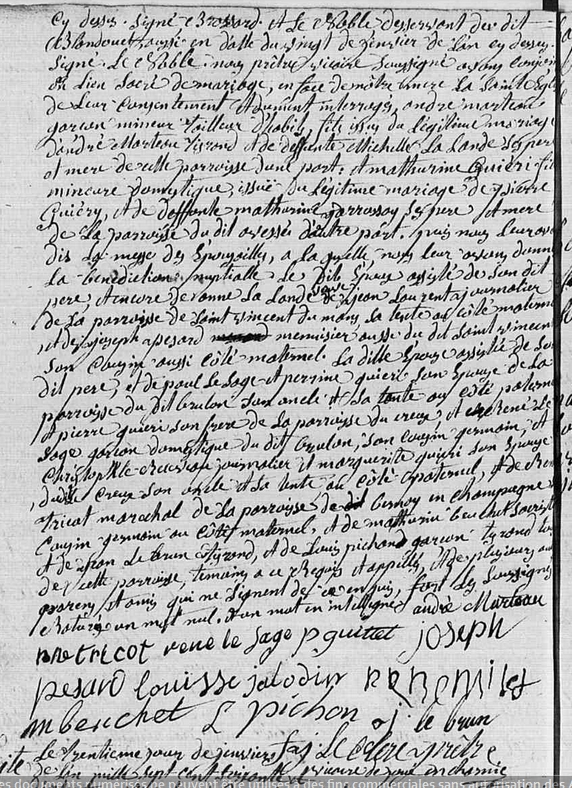 Cy dessus signé Brossard et Le Noble desservant du dit
Blandouet aussi en datte du vingt de jenvier de l'an cy dessus
signé Le Noble. nous prêtre vicaire soussigné avons conjoin
du lien sacré de mariage, en face de nôtre mere La Sainte Egl
de Leur consentement et dument interrogés, andre marteau
garçon mineur tailleur d'habits, fils issu du légitime mariage
d'andré Marteau et de deffunte Michelle La Lande ses pere
et mere de cette parroisse d'une part; et mathurine Quiéri fil
mineure domestique, issue du légitime mariage de pierre
Quiéry, et de deffunte mathurine ses pere et mere
de La parroisse du dit d'autre part. puis nous leur avo
dis La messe des Epousailles, a la quelle nous leur avons donné
La benediction nuptialle. Le Dit Epoux assisté de son dit
pere, encore de vanne La Lande veuve de jean Laurent journalier
de La parroisse de saint vincent du mans, sa tente au côté materne
et de joseph pesard menuisier aussi du dit saint vincent
son cousin aussi côté maternel. La ditte Epouse assistée de son
dit pere, et de paul Le Sage et perrine quieri son Epouse de La
parroisse du dit brulon son oncle et sa tante au côté paterne
et pierre quieri son frere de La parroisse du creux, et René Le
Sage garçon domestique du dit brulon, son cousin germain, et
Christophle journalier et marguerite quieri son Epouse
du dit creux son oncle et sa tente au côté paternel, et de René
tricot marechal de La parroisse de bernay en champagne
cousin germain au côté maternel, et de mathurin beuchet
et de jean Le brun, et de Louis pichon garçon
de cette parroisse, temoins a ce Requis et appellés, et de plusieurs au
parens et amis qui ne signent de ce enquis, fors Les soussignés
Raturé un mot nul. et un mot en interligne andré Marteau
rne tricot rene le sage p quittet joseph
pesard louisse jalodin
m beuchet L pichon j le brun
f. j. Le prêtre
Le trentieme jour de jenvier
de l'an mille sept cent soixante